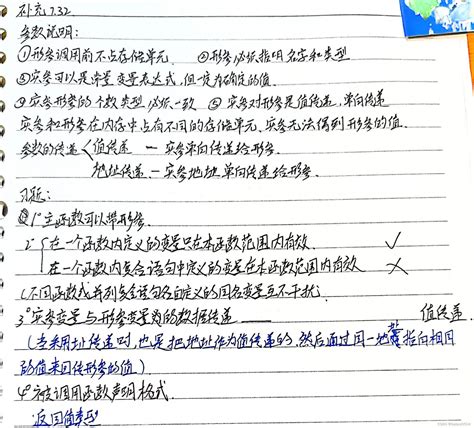 补充7.32
参数说明:
①形参调用前不占存储单元. ②形参必须指明名字和类型
③实参可以是常量 变量表达式, 但一定有确定的值.
④实参形参的个数类型必须一致 ⑤实参对形参是值传递, 单向传递
实参和形参在内存中占有不同的存储单元. 实参无法得到形参的值.
参数的传递 值传递 — 实参单向传递给形参.
地址传递 — 实参地址单向传递给形参.
习题:
1° 主函数可以带形参.
2° 在一个函数内定义的变量只在本函数范围内有效. ✓
在一个函数内复合语句中定义的变量在本函数范围内有效 ×
(不同函数或并列复合语句各自定义的同名变量互不干扰).
3° 实参变量与形参变量的数据传递 值传递.
(当采用址传递时, 也是把地址作为值传递的, 然后通过同一地 指向相同
的值来回传形参的值)
4° 被调用函数声明格式.
返回值类型